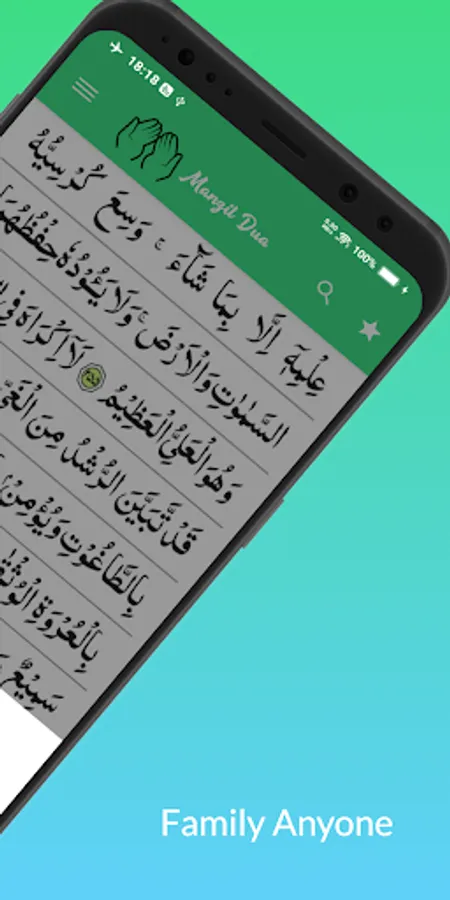 18:18
5.80 100%
Manzil Dua
عِلْمِهٖٓ اِلَّا بِمَا شَآءَ ۚ وَسِعَ كُرْسِيُّهُ
السَّمٰوٰتِ وَالْاَرْضَ ۚ وَلَا يَـُٔوْدُهٗ حِفْظُهُمَا
وَهُوَ الْعَلِيُّ الْعَظِيْمُ لَآ اِكْرَاهَ فِى
قَدْ تَّبَيَّنَ الرُّشْدُ مِنَ الْغَيِّ
بِالطَّاغُوْتِ وَيُؤْمِنْۢ
بِالْعُرْوَةِ الْوُثْقٰى
سَمِيْعٌ
Family Anyone